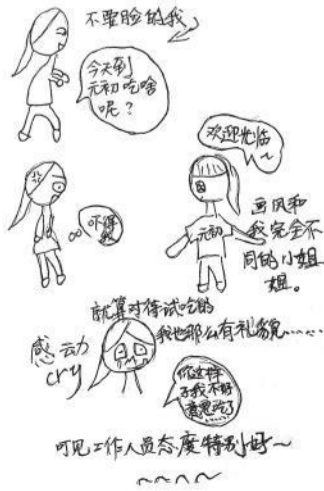 不要脸的我
今天到
元初吃啥
呢？
欢迎光临
~
吓得
我
元初
画风和
我完全不
同的小姐
姐。
就算对待试吃的
我也那么有礼貌……
感动
cry
你这样
子我不好
意思吃了
可见工作人员态度特别好~
~~~~